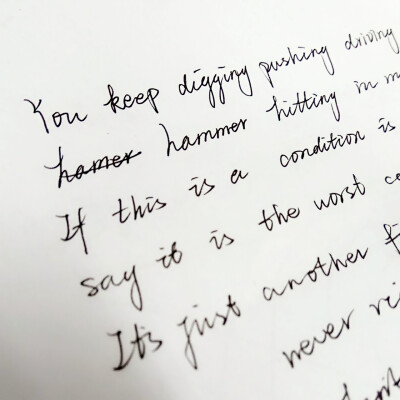 You keep digging pushing driving
hamer hammer hitting in
If this is a condition is
say it is the worst
It's just another
never